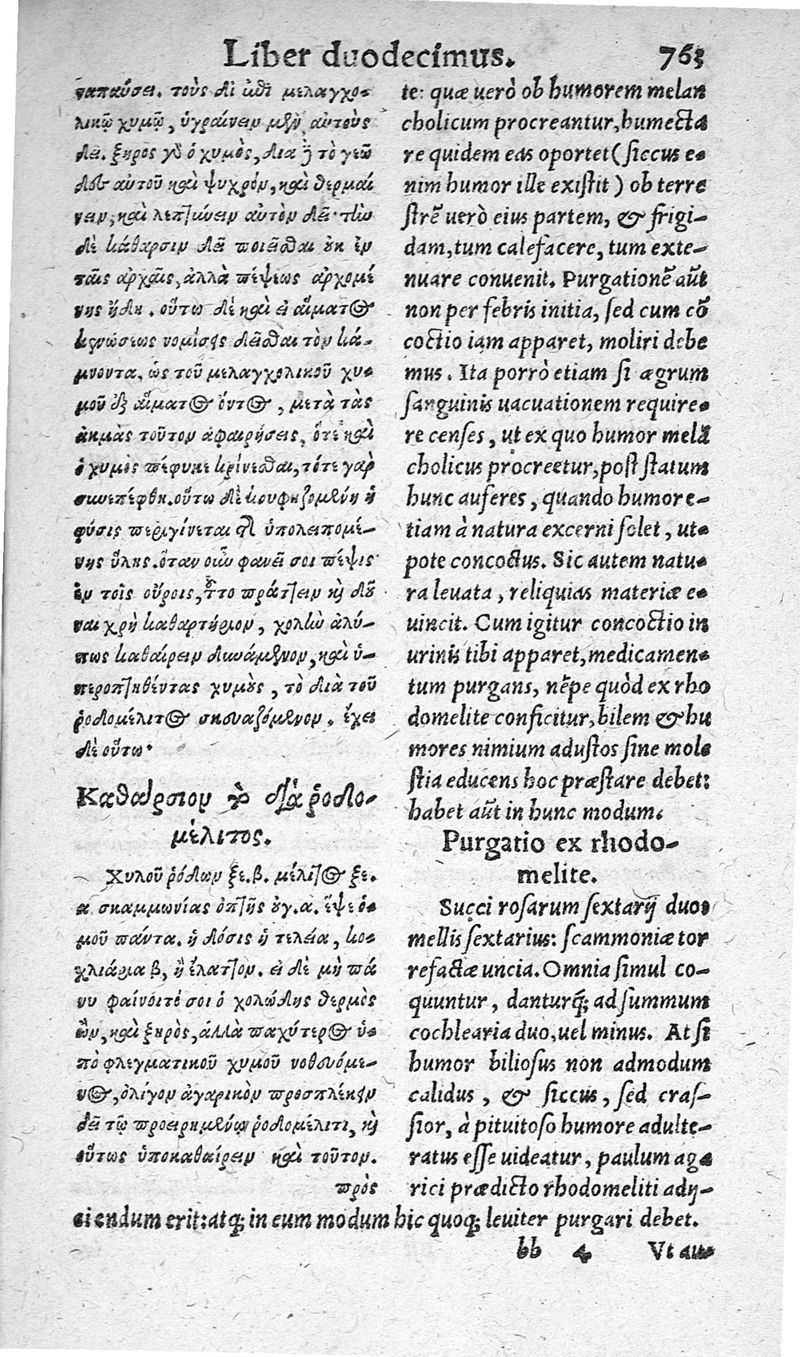 Liber duodecimus. 763
γαπαύσει. τοὺς δὲ ἐπὶ μελαγχο-
λικῷ χυμῷ, ὑγραίνειν μὲν αὐτοὺς
δεῖ. ξηρὸς γὰρ ὁ χυμὸς, διὰ δὲ τὸ γεῶ
δες αὐτοῦ καὶ ψυχρόν, καὶ θερμαί
νειν, καὶ λεπτύνειν αὐτὸν δεῖ· τὴν
δὲ κάθαρσιν δεῖ ποιεῖσθαι οὐκ ἐν
ταῖς ἀρχαῖς, ἀλλὰ πέψεως ἀρχομέ
νης ἤδη. οὕτω δὲ καὶ εἰ αἵματος
κενώσεως νομίσεις δεῖσθαι τὸν κά-
μνοντα, ὡς τοῦ μελαγχολικοῦ χυ-
μοῦ ἐξ αἵματος ὄντος, μετὰ τὰς
ἀκμὰς τοῦτον ἀφαιρήσεις, ὅτε καὶ
ὁ χυμὸς πέφυκε κρίνεσθαι, τότε γὰρ
συνεπέφθη. οὕτω δὲ κουφιζομένη ἡ
φύσις περιγίνεται τῆς ὑπολειπομέ-
νης ὕλης. ὅταν οὖν φανεῖ σοι πέψις
ἐν τοῖς οὔροις, τότε πράττειν καὶ δοῦ
ναι χρὴ καθαρτήριον, χολὴν ἀλύ-
πως καθαίρειν δυνάμενον, καὶ ὑ-
περοπτηθέντας χυμοὺς, τὸ διὰ τοῦ
ῥοδομέλιτος σκευαζόμενον. ἔχει
δὲ οὕτω·
Καθάρσιον τὸ διὰ ῥοδο-
μέλιτος.
Χυλοῦ ῥόδων ξε. β. μέλιτος ξε.
α σκαμμωνίας ὀπτῆς οὐγ. α. ἕψε ὁ-
μοῦ πάντα. ἡ δόσις ἡ τελεία, κο-
χλιάρια β, ἢ ἔλαττον. εἰ δὲ μὴ πά
νυ φαίνοιτό σοι ὁ χολώδης θερμὸς
ὢν, καὶ ξηρὸς, ἀλλὰ παχύτερος ὑ-
πὸ φλεγματικοῦ χυμοῦ νοθευόμε-
νος, ὀλίγον ἀγαρικὸν προσπλέκειν
δεῖ τῷ προειρημένῳ ῥοδομέλιτι, καὶ
οὕτως ὑποκαθαίρειν καὶ τοῦτον.
πρὸς
te: quæ uerò ob humorem melan
cholicum procreantur, humecta
re quidem eas oportet (siccus e-
nim humor ille existit) ob terre
strẽ uerò eius partem, & frigi-
dam, tum calefacere, tum exte-
nuare conuenit. Purgationẽ aũt
non per febris initia, sed cum cõ
coctio iam apparet, moliri debe
mus. Ita porrò etiam si ægrum
sanguinis uacuationem require-
re censes, ut ex quo humor melã
cholicus procreetur, post statum
hunc auferes, quando humor e-
tiam à natura excerni solet, ut-
pote concoctus. Sic autem natu-
ra leuata, reliquias materiæ e-
uincit. Cum igitur concoctio in
urinis tibi apparet, medicamen-
tum purgans, nẽpe quòd ex rho
domelite conficitur, bilem & hu
mores nimium adustos sine mole
stia educens hoc præstare debet:
habet aũt in hunc modum.
Purgatio ex rhodo-
melite.
Succi rosarum sextarij duo:
mellis sextarius: scammoniæ tor
refactæ uncia. Omnia simul co-
quuntur, danturq; ad summum
cochlearia duo, uel minus. At si
humor biliosus non admodum
calidus, & siccus, sed cras-
sior, à pituitoso humore adulte-
ratus esse uideatur, paulum aga
rici prædicto rhodomeliti adij-
ciendum erit: atq; in eum modum hic quoq; leuiter purgari debet.
bb 4 Vt au-